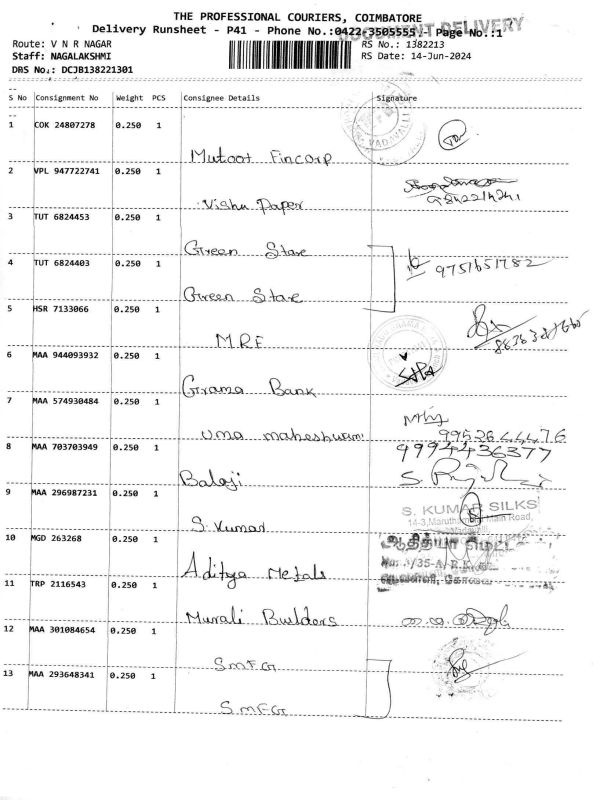 THE PROFESSIONAL COURIERS, COIMBATORE
DOCUMENT DELIVERY
Delivery Runsheet - P41 - Phone No.:0422-3505555 - Page No.:1
Route: V N R NAGAR
RS No.: 1382213
Staff: NAGALAKSHMI
RS Date: 14-Jun-2024
DRS No.: DCJB138221301
S No Consignment No Weight PCS Consignee Details Signature
1 COK 24807278 0.250 1
VADAVALLI
Mutoot Fincorp
2 VPL 947722741 0.250 1
Vishu Paper
3 TUT 6824453 0.250 1
Green Stare
4 TUT 6824403 0.250 1
9751651782
Green Stare
5 HSR 7133066 0.250 1
M.R.F
6 MAA 944093932 0.250 1
Grama Bank
7 MAA 574930484 0.250 1
uma maheshwari
8 MAA 703703949 0.250 1
9994436377
Balaji
9 MAA 296987231 0.250 1
S. KUMAR SILKS
14-3, Maruthamalai Main Road,
S. Kumar
10 MGD 263268 0.250 1
ஆதித்யா மெட்டல்
Aditya Metals
11 TRP 2116543 0.250 1
Murali Builders
12 MAA 301084654 0.250 1
SMFG
13 MAA 293648341 0.250 1
SMFG